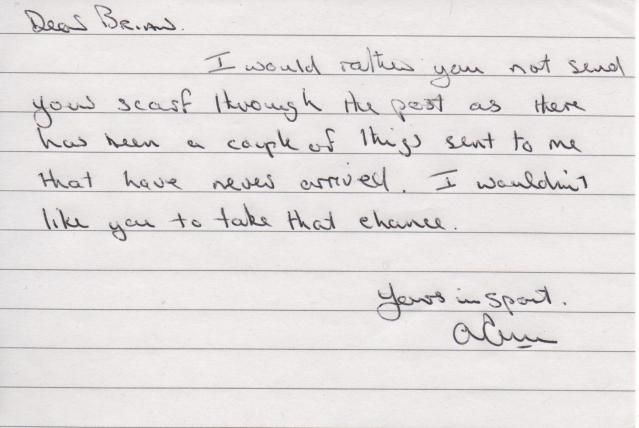 Dear Brian.
I would rather you not send
your scarf through the post as there
has been a couple of things sent to me
that have never arrived. I wouldn't
like you to take that chance.
Yours in sport.